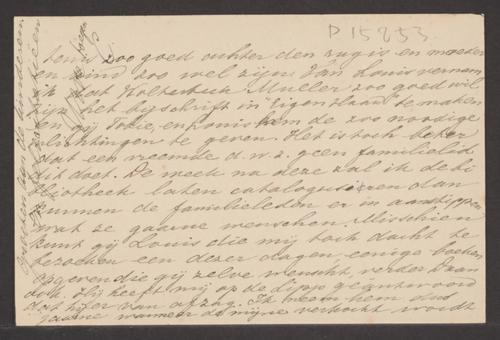 D 15853
zoo goed achter den rug is en moeder
en kind zoo wel zijn. Van Louis vernam
ik dat Holterbach Muller zoo goed wil
zijn het bijschrift in Eigen Haard te maken
en gij, en Louis hem de zoo noodige
inlichtingen te geven. Het is toch beter
dat een vreemde d.w.z. geen familielid
dit doet. De week na deze zal ik de bi
bliotheek laten catalogiseeren dan
kunnen de familieleden er in aanstippen
wat ze gaarne menschen. Misschien
kunt gij Louis die mij toch dacht te
bezoeken een dezer dagen eenige boeken
opgeven die gij zelve wenscht, verder
ook. Hij heeft mij op de geantwoord
dat hij er van afzag. Ik meen hem
gaarne wanneer de mijne verkocht wordt
Groeten aan de kinderen